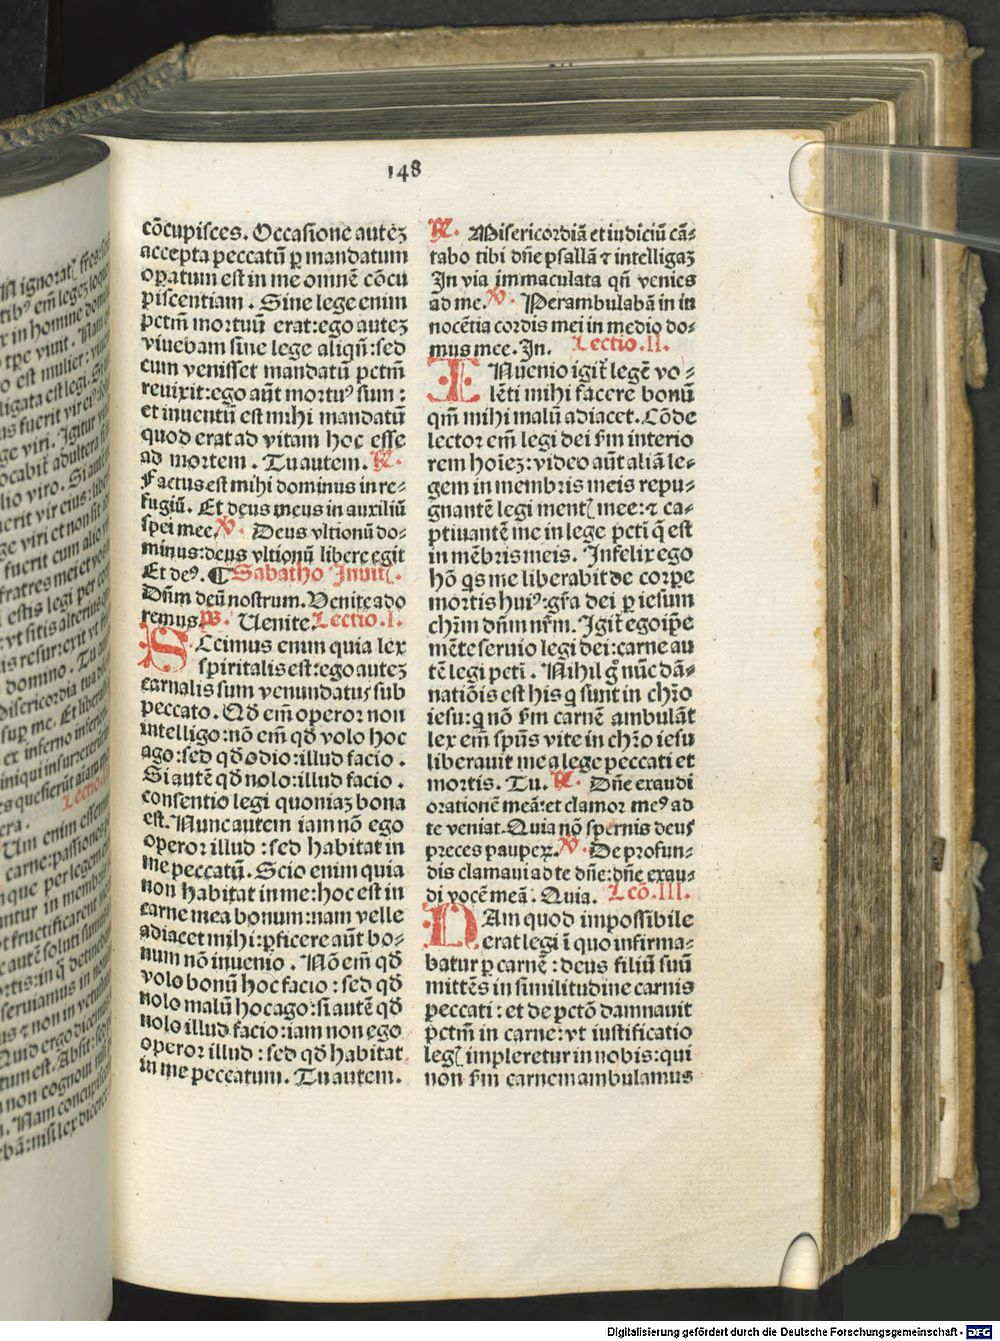 148
cōcupisces. Occasione autē
accepta peccatū ꝑ mandatum
operatum est in me omnē cōcu
piscentiam. Sine lege enim
pctm̄ mortuū erat: ego auteꝫ
viuebam sine lege aliqn̄: sed
cum venisset mandatū pctm̄
reuixit: ego aūt mortuꝰ sum:
et inuentū est mihi mandatū
quod erat ad vitam hoc esse
ad mortem. Tu autem. ℟.
Factus est mihi dominus in re⸗
fugiū. Et deus meus in auxiliū
spei mee. ℣. Deus vltionū do⸗
minus: deus vltionū libere egit
Et deꝰ. ¶ Sabatho Inuit.
Dn̄m deū nostrum. Venite ado
remus. Ps. Uenite. Lectio. I.
SCcimus enim quia lex
spiritalis est: ego auteꝫ
carnalis sum venundatus sub
peccato. Qd̄ em̄ operor non
intelligo: nō em̄ qd̄ volo hoc
ago: sed qd̄ odio: illud facio.
Si autē qd̄ nolo: illud facio.
consentio legi quoniaꝫ bona
est. Nunc autem iam nō ego
operor illud: sed habitat in
me peccatū. Scio enim quia
non habitat in me: hoc est in
carne mea bonum: nam velle
adiacet mihi: ꝑficere aūt bo⸗
num nō inuenio. Nō em̄ qd̄
volo bonū hoc facio: sed qd̄
nolo malū hoc ago: si autē qd̄
nolo illud facio: iam non ego
operor illud: sed qd̄ habitat
in me peccatum. Tu autem.
℟. Misericordiā et iudiciū cā⸗
tabo tibi dn̄e psallā ⁊ intelligaꝫ
In via immaculata qn̄ venies
ad me. ℣. Perambulabā in in
nocētia cordis mei in medio do⸗
mus mee. In. Lectio. II.
INuenio igit̄ legē vo⸗
lēti mihi facere bonū
qm̄ mihi malū adiacet. Cōde
lector em̄ legi dei ẜm interio
rem hoīeꝫ: video aūt aliā le⸗
gem in membris meis repu⸗
gnantē legi mentꝭ mee: ⁊ ca⸗
ptiuantē me in lege pcti q̄ est
in mēbris meis. Infelix ego
hō qs me liberabit de corpe
mortis huiꝰ: gr̄a dei ꝑ iesum
chr̄m dn̄m nr̄m. Igit̄ ego ip̄e
mēte seruio legi dei: carne au
tē legi pcti. Nihil gͦ nūc dā⸗
natiōis est his q̇ sunt in chr̄o
iesu: q̇ nō ẜm carnē ambulāt
lex em̄ spūs vite in chr̄o iesu
liberauit me a lege peccati et
mortis. Tu. ℟. Dn̄e exaudi
orationē meā: et clamor meꝰ ad
te veniat. Quia nō spernis deus
preces pauperꝝ. ℣. De profun⸗
dis clamaui ad te dn̄e: dn̄e exau⸗
di vocē meā. Quia. Lcō. III.
NAm quod impossibile
erat legi ī quo infirma⸗
batur ꝑ carnē: deus filiū suū
mittēs in similitudine carnis
peccati: et de pctō damnauit
pctm̄ in carne: vt iustificatio
legꝭ impleretur in nobis: qui
non ẜm carnem ambulamus
Digitalisierung gefördert durch die Deutsche Forschungsgemeinschaft - DFG